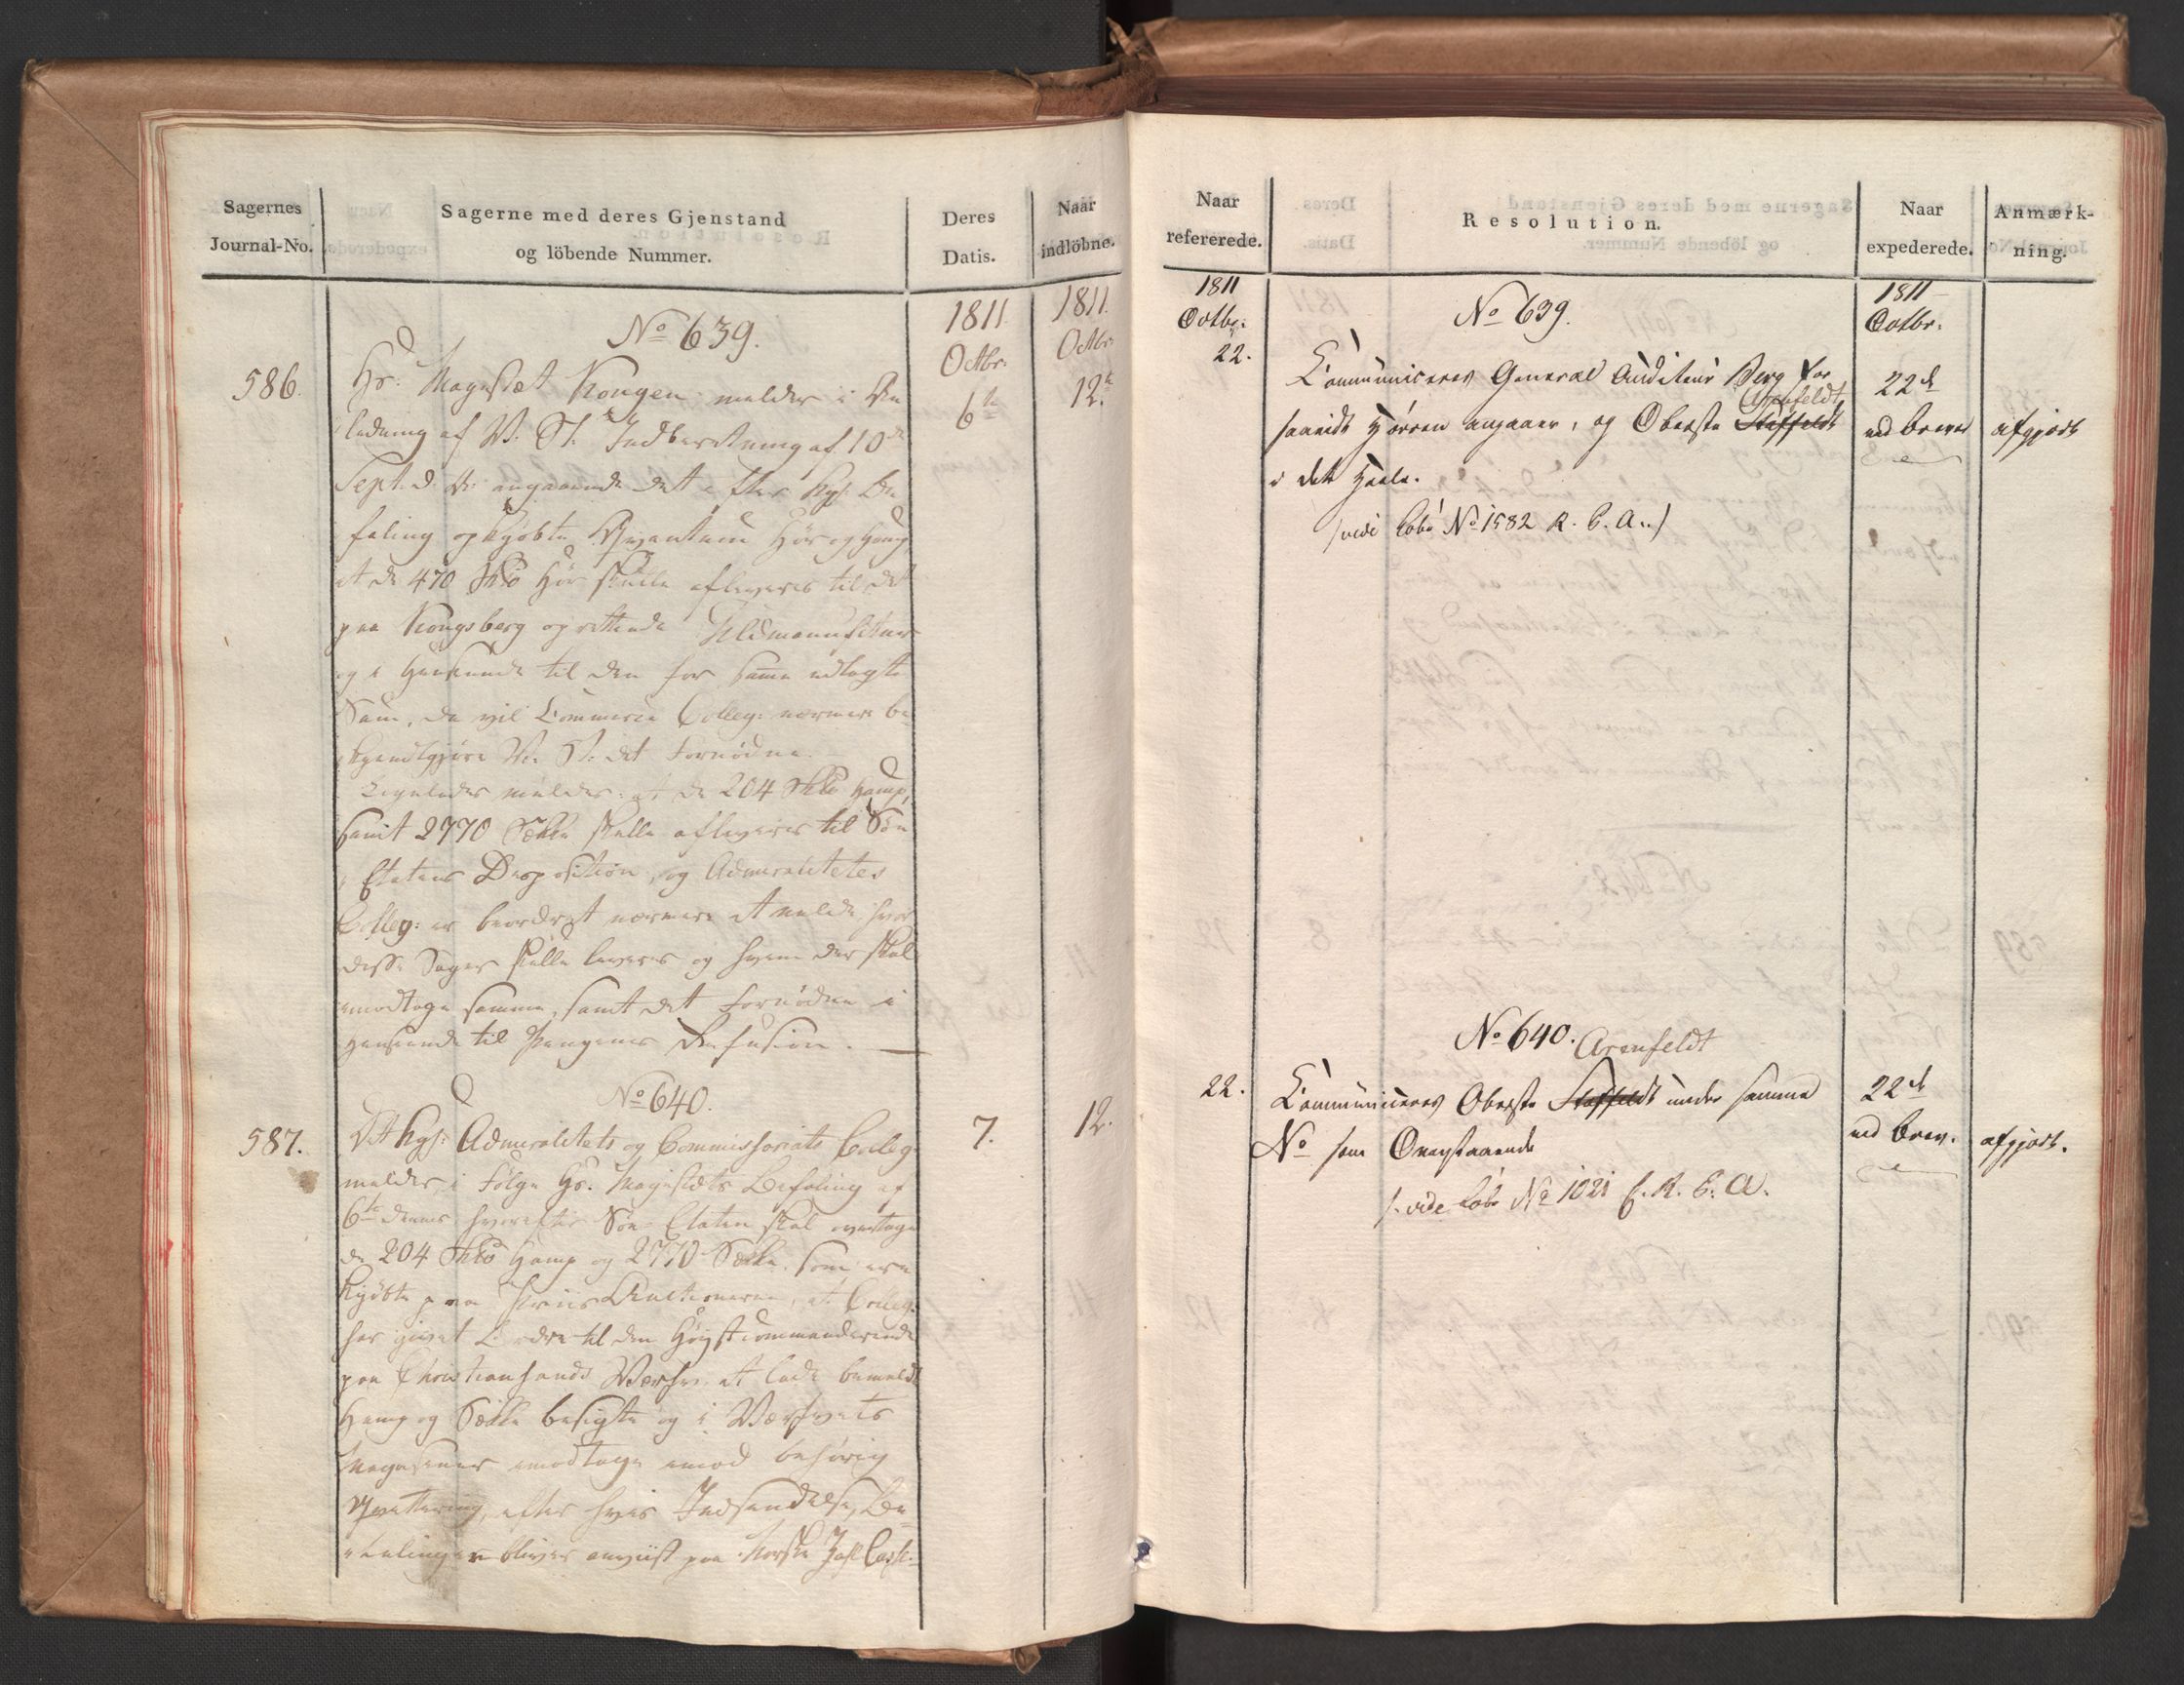 Sagernes
Journal-No.
Sagerne med deres Gjenstand
og löbende Nummer.
Deres
Datis.
Naar
indlöbne.
1811
Octbr.
1811.
Octbr.
No 639.
586.
6te
12te
Hs: Majestæt Kongen melder i An
ledning af V. St. Indberetning af 10de
Sept. d. A. angaaende det efter Kgl. Be
faling opkjøbte Qvantum Hør og Hamp,
at de 470 SkPd Hør skulle afleveres til det
paa Kongsberg oprettende Uldmanufactur
og i Henseende til den for samme udlagte
Sum, da vil Commerce Colleg: nærmere be
kjendtgjøre V. St. det fornødne.
Ligeledes meldes: at de 204 SkPd Hamp,
samt 2770 Sække skulle afleveres til Søe
Etatens Disposition, og Admiralitetes
Colleg: er beordret nærmere at melde, hvor
disse Sager skulle leveres og hvem der skal
modtage samme, samt det fornødne i
Henseende til Pengenes Refusion.
No 640.
587.
7.
12.
Det kgl: Admiralitets og Commissariats Colleg.
melder, i Følge Hs. Majestæts Befaling af
6te dennes hvorefter Søe-Etaten skal overtage
de 204 SkPd Hamp og 2770 Sække, som ere
kjøbte paa Priis Auctionerne, at Colleg.
har givet Ordre til den Høystcommanderende
paa Christiansands Værft at lade bemeldte
Hamp og Sække besigte og i Værfvets
Magasiner modtage imod behørig
Qvittering, efter hvis Indsendelse, Be
talingen bliver anviist paa Norske Zahl Casse.
Naar
refererede.
Resolution.
Naar
expederede.
Anmærk-
ning.
1811
Octbr.
22.
1811
Octbr.
No 639.
Communiceres General Auditeur Berg for
Arenfeldt
saavidt Hørren angaaer, og Oberste Staffeldt
i det Heele.
(vide Løbe No 1582 R. C. A.)
22de
ved Brever
afgjort
No 640.
Arenfeldt
22.
Communiceres Oberste Staffeldt under samme
No som Ovenstaaende
(vide Løbe No 1021 f. R. C. A.
22de
ved Brev.
afgjort.